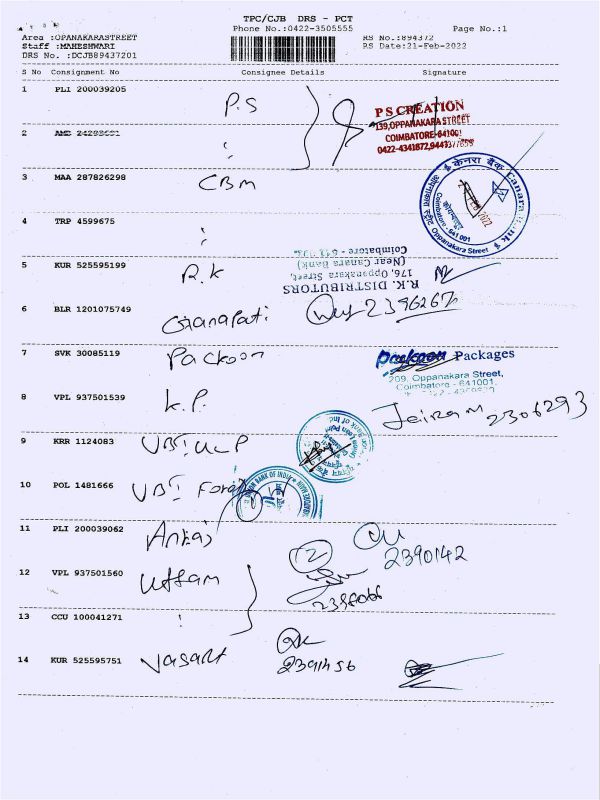 TPC/CJB DRS - PCT
Phone No.:0422-3505555
Page No.:1
Area :OPANAKARASTREET
Staff :MAHESHWARI
DRS No. :DCJB89437201
RS No.:894372
RS Date:21-Feb-2022
S No Consignment No Consignee Details Signature
1 PLI 200039205 P.S
P S CREATION
139,OPPANAKARA STREET
COIMBATORE-641001
0422-4341872,
2
3 MAA 287826298 CBM
केनरा बैंक Canara Bank
Coimbatore - 641 001
Oppanakara Street
FEB 2022
4 TRP 4599675
5 KUR 525595199 R.K
R.K. DISTRIBUTORS
176, Oppanakara Street,
(Near Canara Bank)
Coimbatore -
6 BLR 1201075749 Ganapati
2396267
7 SVK 30085119 Packoon
Packoon Packages
209, Oppanakara Street,
Coimbatore - 641001.
8 VPL 937501539 K.P.
Jeiram 2306293
9 KRR 1124083 UBI
10 POL 1481666 UBI
BANK OF INDIA
11 PLI 200039062
2390142
12 VPL 937501560 Uttam
12
13 CCU 100041271
14 KUR 525595751 Vasant
2391456